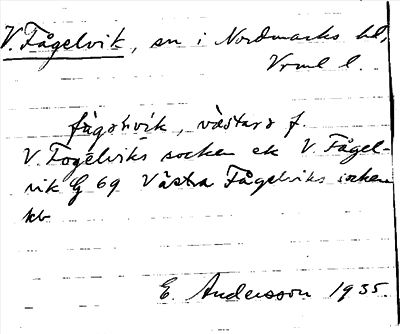 V. Fågelvik, sn i Nordmarks hd,
Vrml l.
fúgəlvik, västard f.
V. Fogelviks socken ek V. Fågel-
vik G 69 Västra Fågelviks socken
kb
E. Andersson 1935.